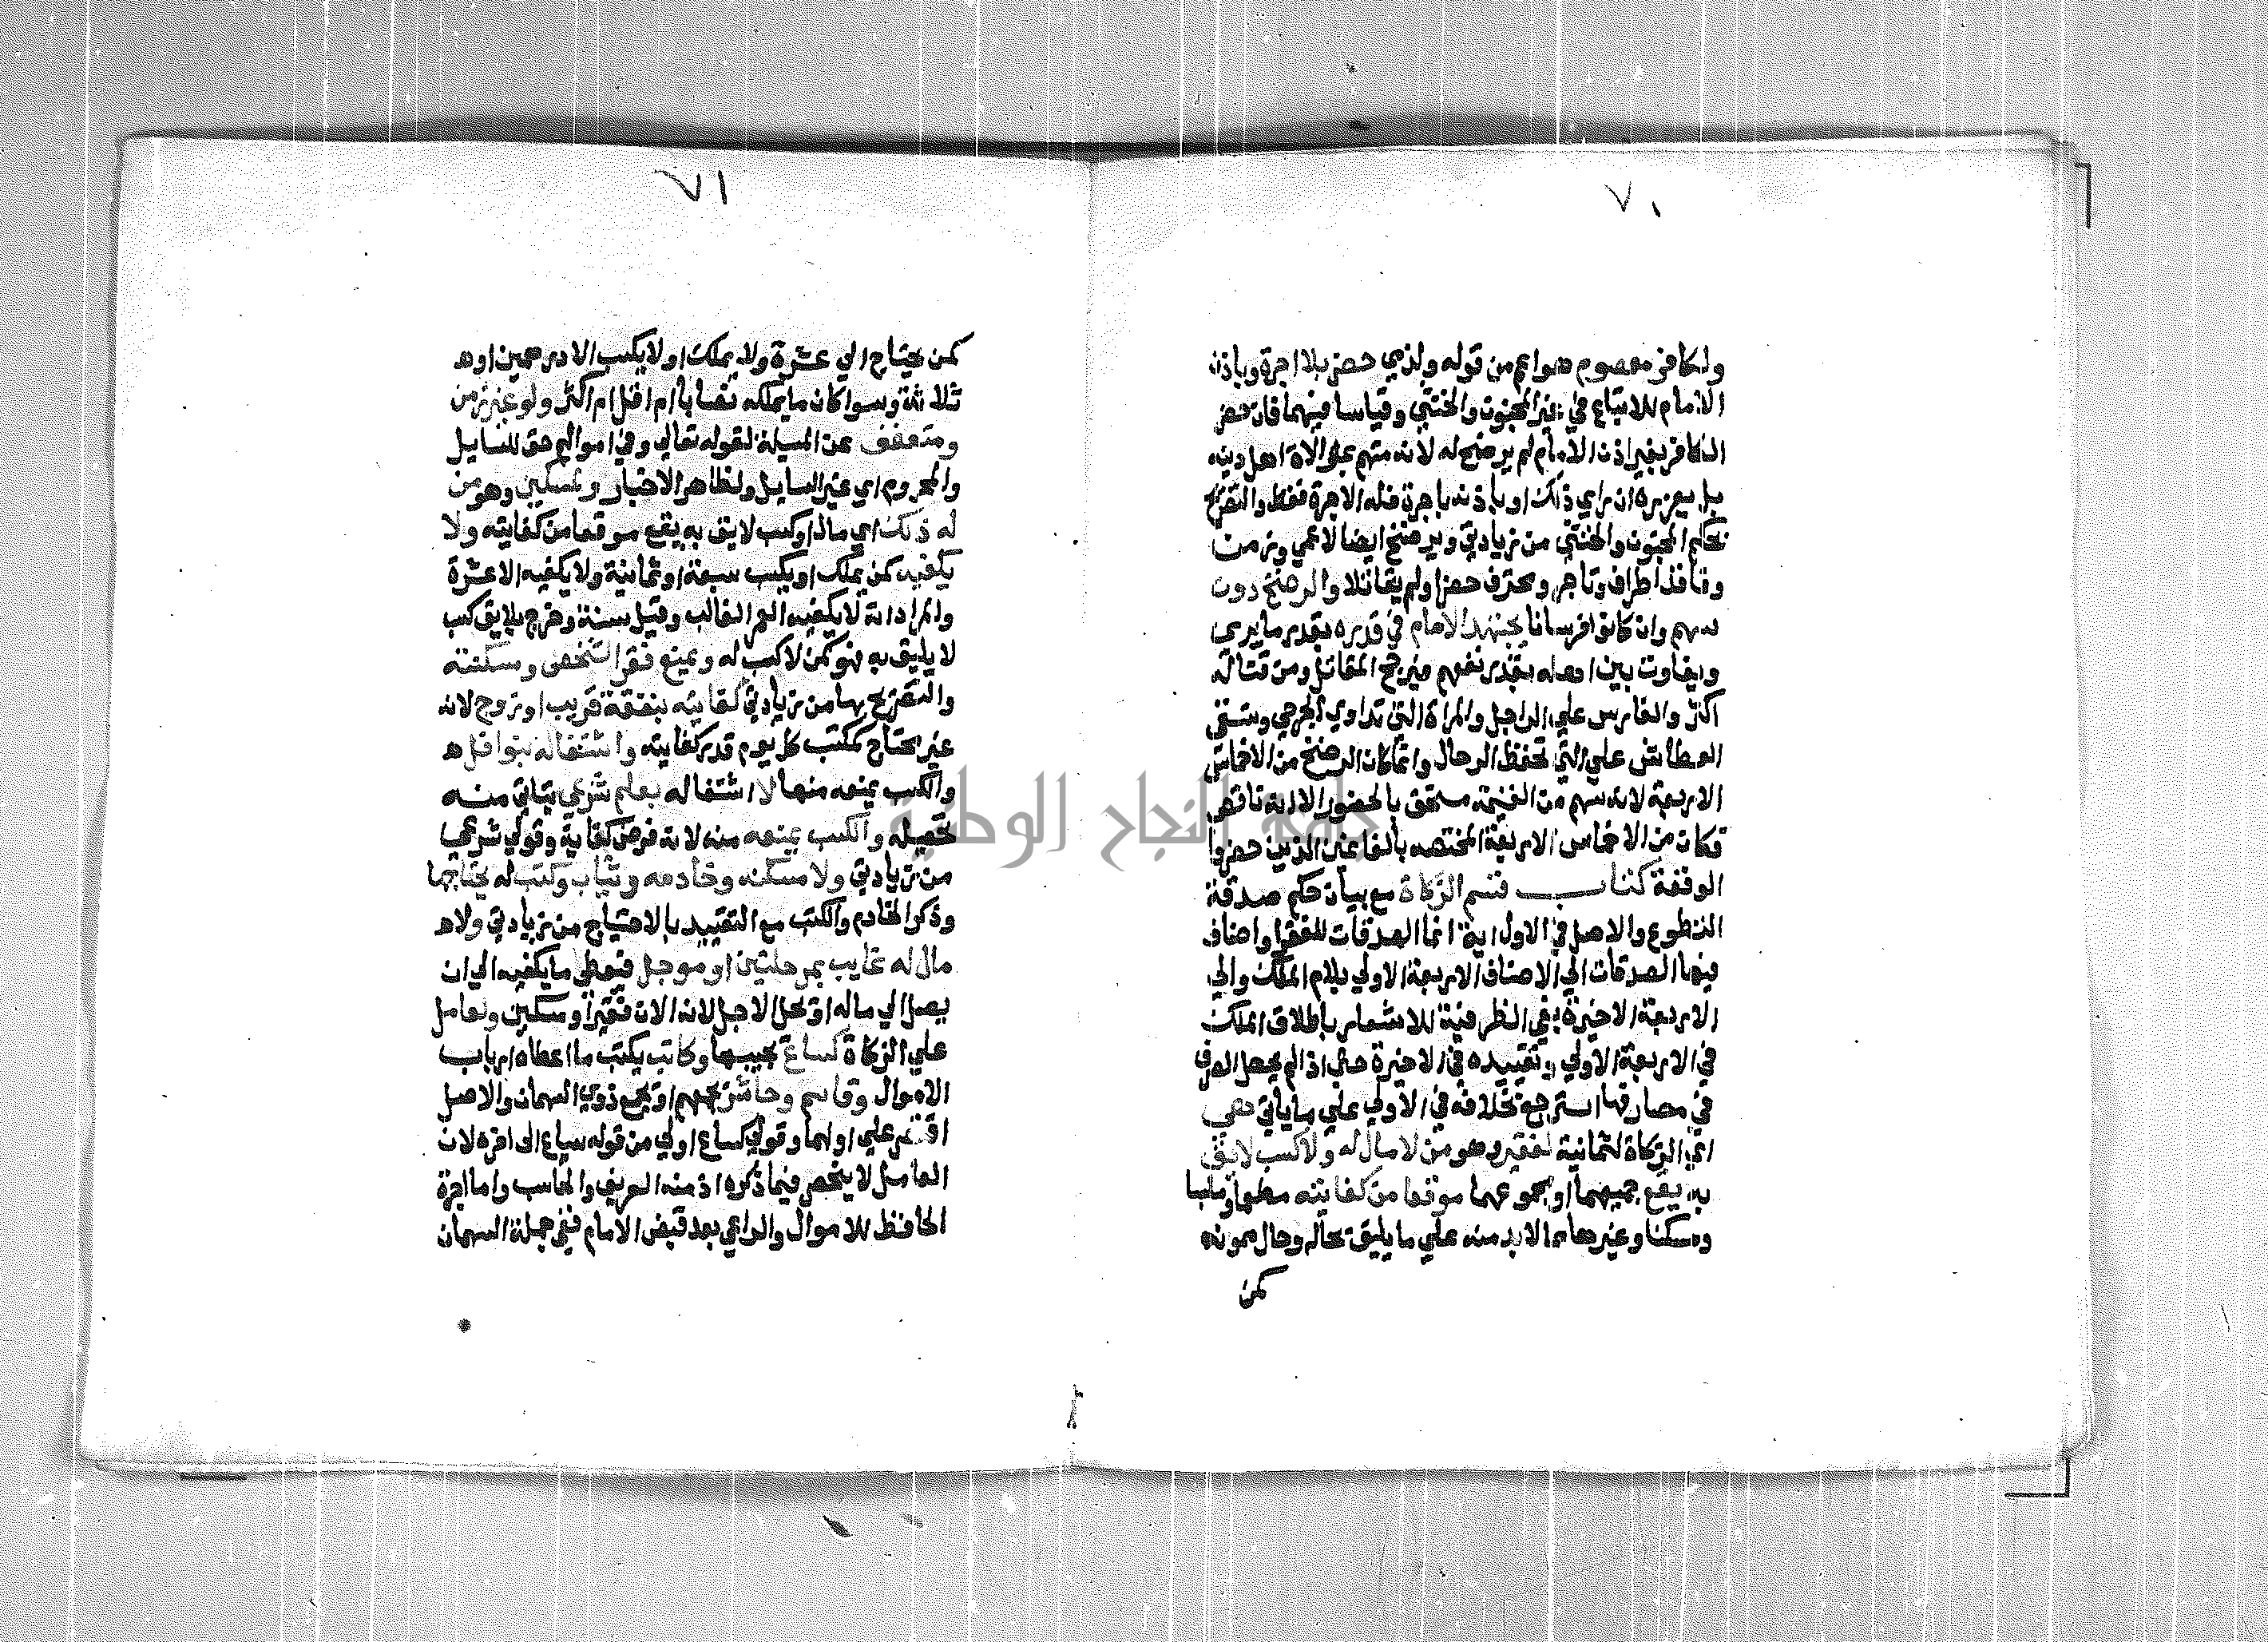 ٧٠
ولكافر معصوم هو اعم من قوله ولذمي حضر بلا اجرة وباذن
الامام للاتباع في غير المجنون والخنثي وقياسا فيهما فان حضر
الكافر بغير اذن الامام لم يرضخ له لانه متهم بموالاة اهل دينه
بل يعزره ان راي ذلك او باذنه باجرة فله الاجرة فقط والتصريح
بحكم المجنون والخنثي من زيادتي ويرضخ ايضا لاعمي وزمن
وفاقد اطراف وتاجر ومحترف حضرا ولم يقاتلا والرضخ دون
سهم وان كانوا فرسانا يجتهد الامام في قدره بقدر ما يري
ويفاوت بين اهله بقدر نفعهم فيرجح المقاتل ومن قتاله
اكثر والفارس علي الراجل والمراة التي تداوي الجرحي وتسقي
العطاش علي التي تحفظ الرحال وانما كان الرضخ من الاخماس
الاربعة لانه سهم من الغنيمة مستحق بالحضور الا انه ناقص
فكان من الاخماس الاربعة المختصه بالغانمين الذين حضروا
الوقعة كتاب قسم الزكاة مع بيان حكم صدقة
التطوع والاصل في الاول اية انما الصدقات للفقرا واضاف
فيها الصدقات الي الاصناف الاربعة الاولي بلام الملك والي
الاربعة الاخيرة بفي الظرفية للاشعار باطلاق الملك
في الاربعة الاولي وتقييده في الاخيرة حتي اذا لم يحصل الصرف
في مصارفها استرجع بخلافه في الاولي علي ما ياتي هي
اي الزكاة لثمانية لفقير وهو من لا مال له ولا كسب لايق
به يقع جميعهما او مجموعهما موقعا من كفايته مطعما وملبسا
ومسكنا وغيرها مما لا بد منه علي ما يليق بحاله وحال ممونه
كمن
٧١
كمن يحتاج الي عشرة ولا يملك او لا يكسب الا درهمين او
ثلاثة وسوا كان ما يملكه نصابا ام اقل ام اكثر ولو غير زمن
ومتعفف عن المسيلة لقوله تعالي وفي اموالهم حق للسايل
والمحروم اي غير السايل ولظاهر الاخبار ولمسكين وهو من
له ذلك اي مال او كسب لايق به يقع موقعا من كفايته ولا
يكفيه كمن يملك او يكسب سبعة او ثمانية ولا يكفيه الا عشرة
والمراد انه لا يكفيه العمر الغالب وقيل سنة وخرج بلايق كسب
لا يليق به فهو كمن لا كسب له ويمنع فقر الشخص ومسكنته
والتصريح بها من زيادتي كفايته بنفقة قريب او زوج لانه
غير محتاج كمكتسب كل يوم قدر كفايته واشتغاله بنوافل
والكسب يمنعه منها لا اشتغاله بعلم شرعي يتاتي منه
تحصيله والكسب يمنعه منه لانه فرض كفاية وقولي شرعي
من زيادتي ولا مسكنه وخادمه وثياب وكتب له يحتاجها
وذكر الخادم والكتب مع التقييد بالاحتياج من زيادتي ولا
مال له غايب بمرحلتين او موجل فيعطي ما يكفيه الي ان
يصل الي ماله او يحل الاجل لانه الان فقير او مسكين ولعامل
علي الزكاة كساع يجبيها وكاتب يكتب ما اعطاه ارباب
الاموال وقاسم وحاشر يجمعهم او يجمع ذوي السهمان والاصل
اقتصر علي اولهما وقولي كساع اولي من قوله ساع الي اخره لان
العامل لا ينحصر فيما ذكره اذ منه العريف والحاسب واما اجرة
الحافظ للاموال والراعي بعد قبض الامام ففي جملة السهمان
جامعة النجاح الوطنية